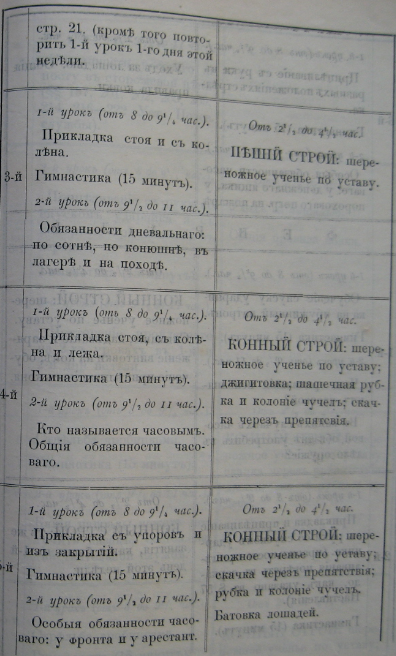 стр. 21, (кромѣ того повто-
рить 1-й урокъ 1-го дня этой
недѣли.
3-й
1-й урокъ (отъ 8 до 9¹/₂ час.).
Прикладка стоя и съ ко-
лѣна.
Гимнастика (15 минутъ).
2-й урокъ (отъ 9¹/₂ до 11 час.).
Обязанности дневальнаго:
по сотнѣ, по конюшнѣ, въ
лагерѣ и на походѣ.
Отъ 2¹/₂ до 4¹/₂ час.
ПѢШІЙ СТРОЙ: шере-
ножное ученье по уставу.
4-й
1-й урокъ (отъ 8 до 9¹/₂ час.).
Прикладка стоя, съ колѣ-
на и лежа.
Гимнастика (15 минутъ).
2-й урокъ (отъ 9¹/₂ до 11 час.).
Кто называется часовымъ.
Общія обязанности часо-
ваго.
Отъ 2¹/₂ до 4¹/₂ час.
КОННЫЙ СТРОЙ: шере-
ножное ученье по уставу;
джигитовка; шашечная руб-
ка и колоніе чучелъ; скач-
ка черезъ препятсвія.
-й
1-й урокъ (отъ 8 до 9¹/₂ час.).
Прикладка съ упоровъ и
изъ закрытій.
Гимнастика (15 минутъ).
2-й урокъ (отъ 9¹/₂ до 11 час.).
Особыя обязанности часо-
ваго: у фронта и у арестант.
Отъ 2¹/₂ до 4¹/₂ час.
КОННЫЙ СТРОЙ: шере-
ножное ученье по уставу;
скачка черезъ препятствія;
рубка и колоніе чучелъ.
Батовка лошадей.